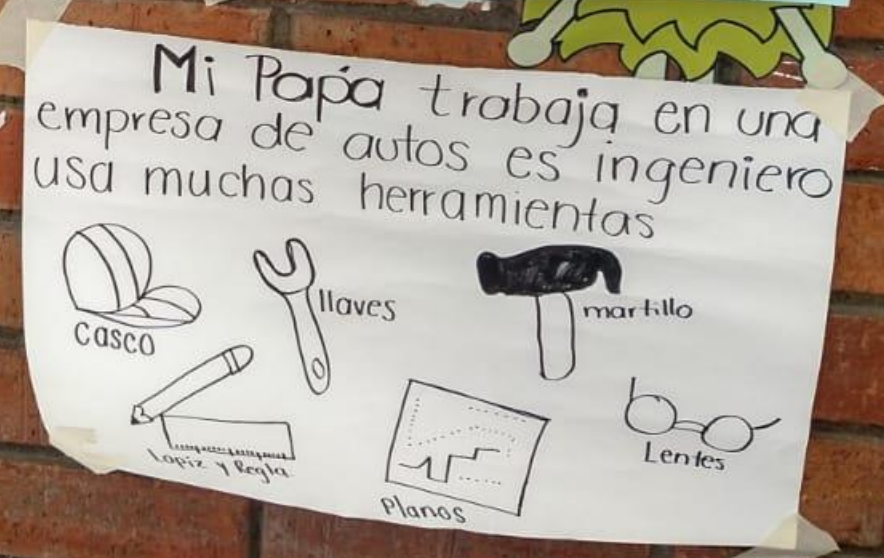 Mi Papá trabaja en una
empresa de autos es ingeniero
usa muchas herramientas
casco
llaves
martillo
Lapiz y Regla
Planos
Lentes